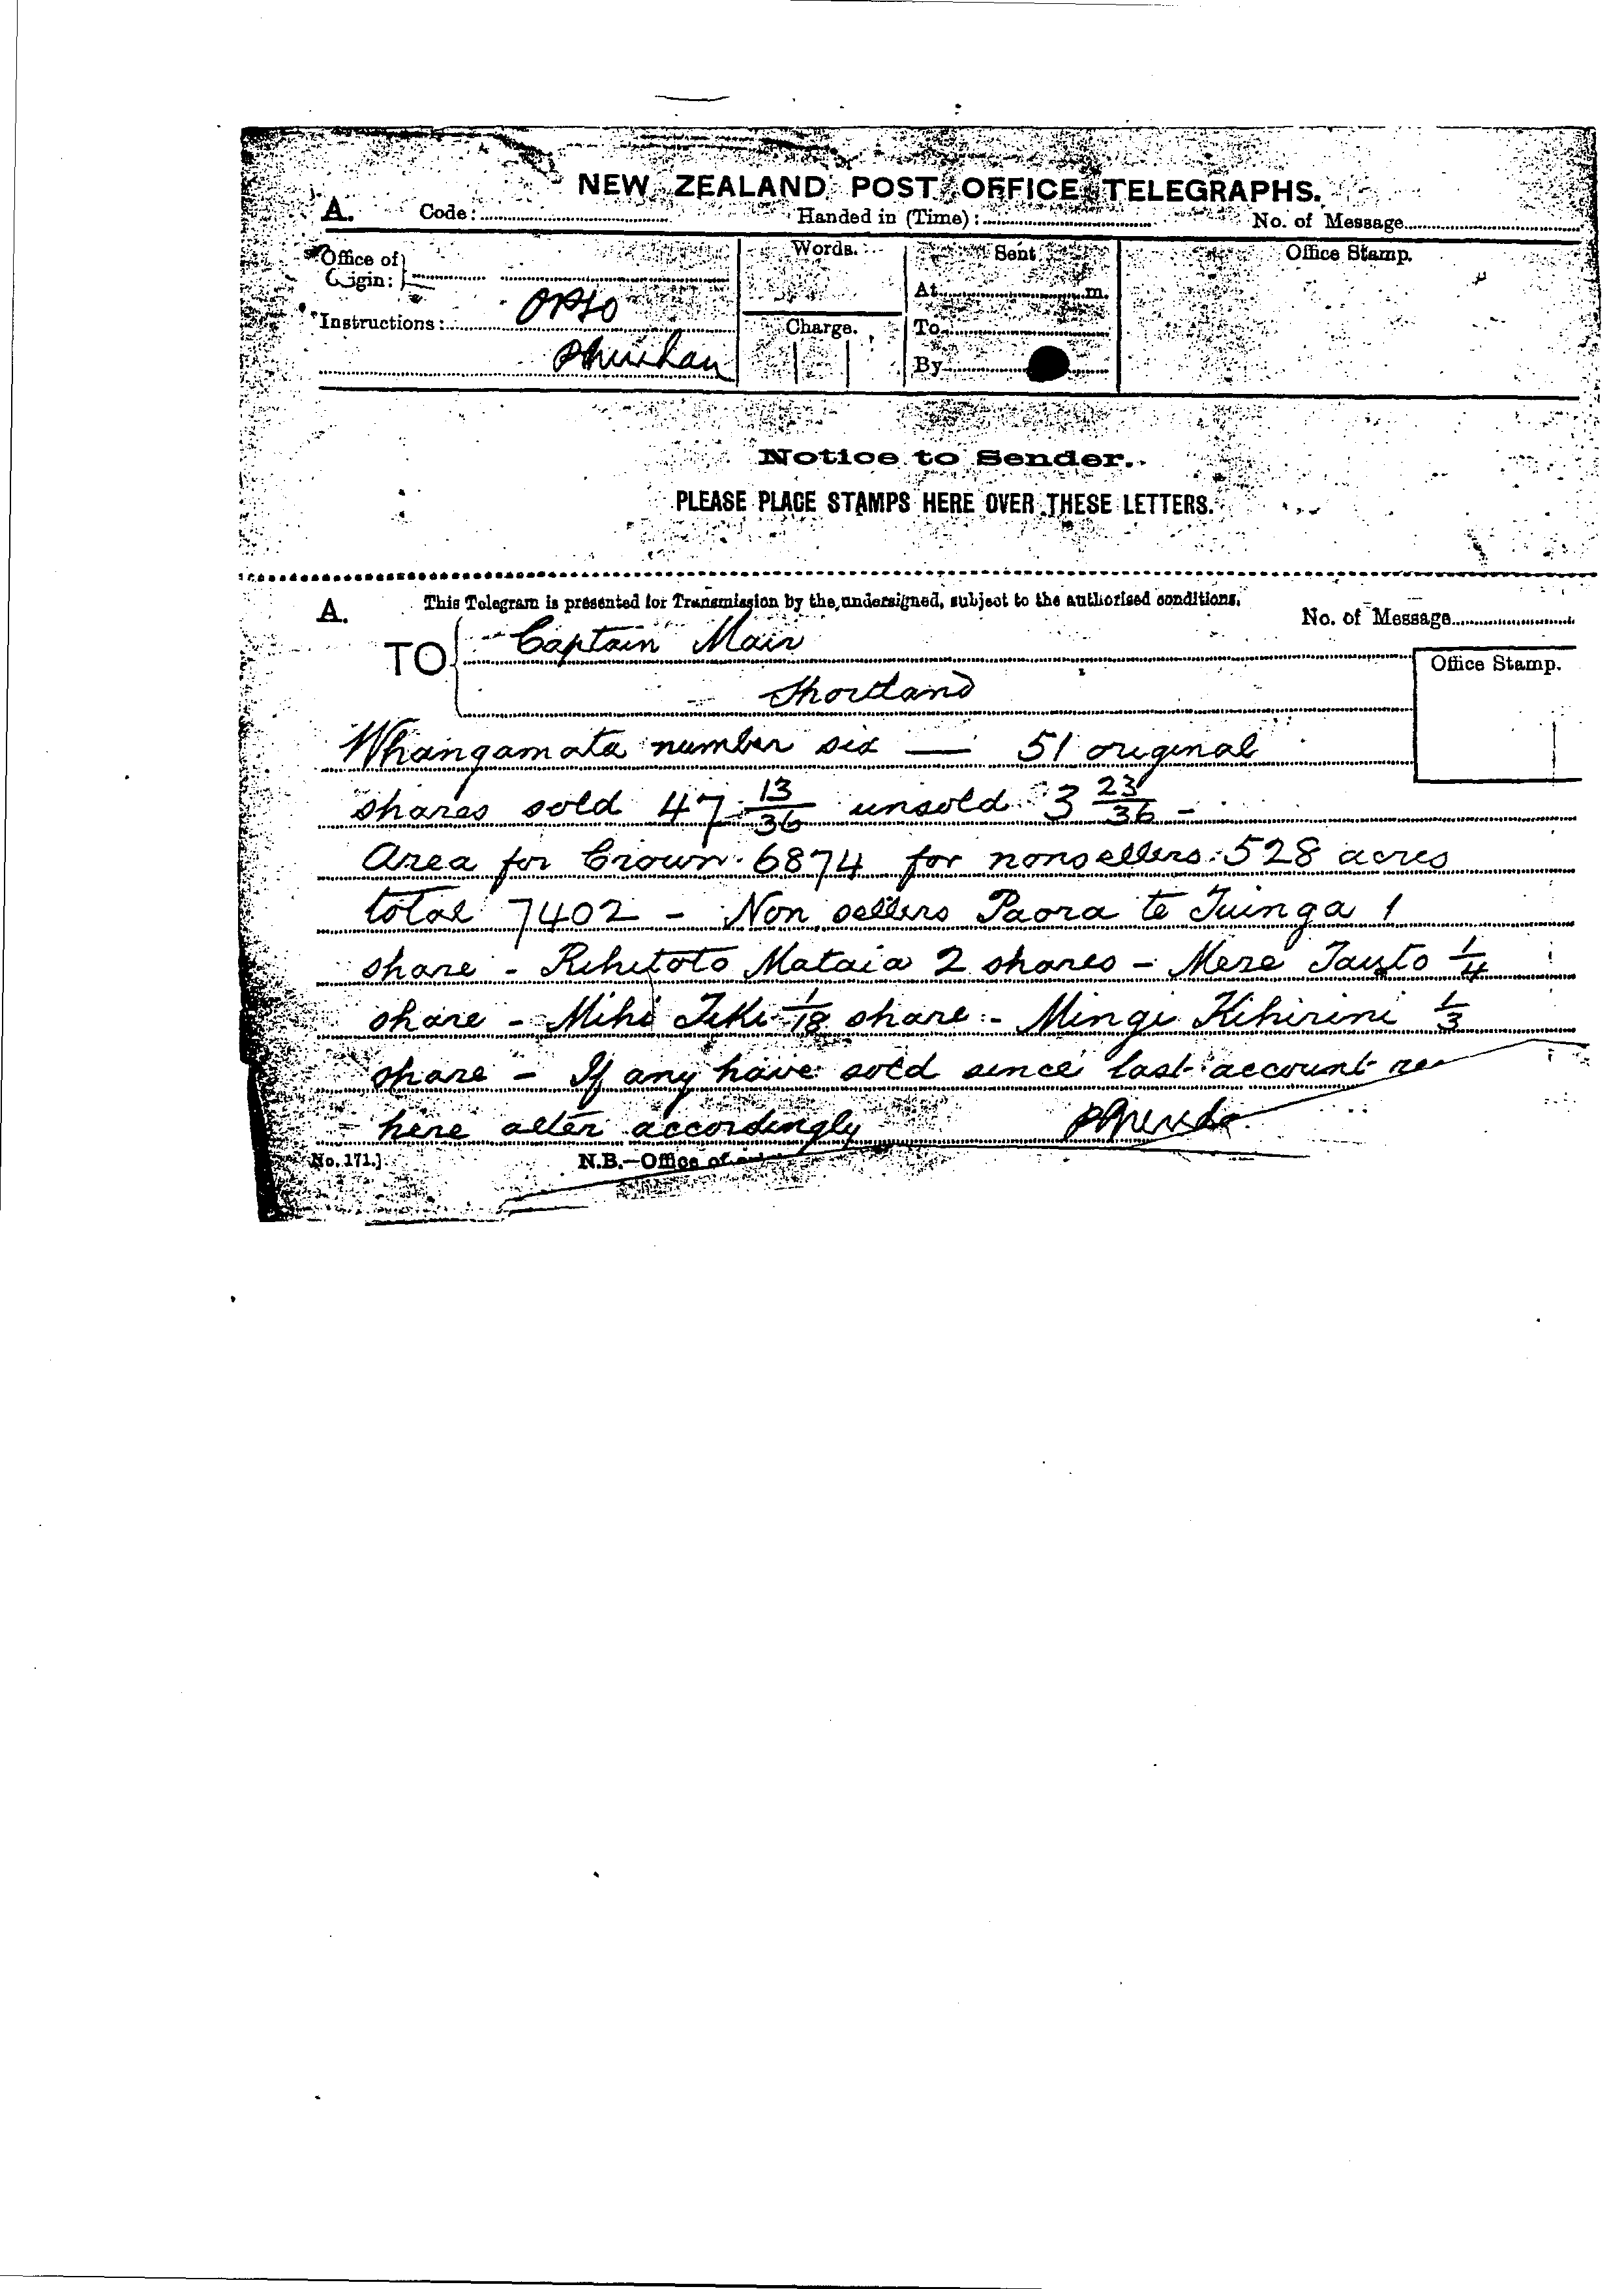 NEW ZEALAND POST OFFICE TELEGRAPHS.
A. Code: Handed in (Time): No. of Message
Office of Origin: Words. Sent Office Stamp.
At m.
Instructions: OPSO Charge. To
By
Notice to Sender.
PLEASE PLACE STAMPS HERE OVER THESE LETTERS.
A. This Telegram is presented for Transmission by the undersigned, subject to the authorised conditions. No. of Message
TO Captain Mair Office Stamp.
Shortland
Whangamata number six — 51 original
shares sold 47 13/36 unsold 3 23/36 -
Area for Crown 6874 for nonsellers 528 acres
total 7402 - Non sellers Paora te Tuinga 1
share - Rihitoto Mataia 2 shares - Mere 1/4
share - Mihi Teki 1/18 share - Mingi Kihirini 1/3
share - If any have sold since last account
here alter accordingly
No. 171.] N.B.—Office of